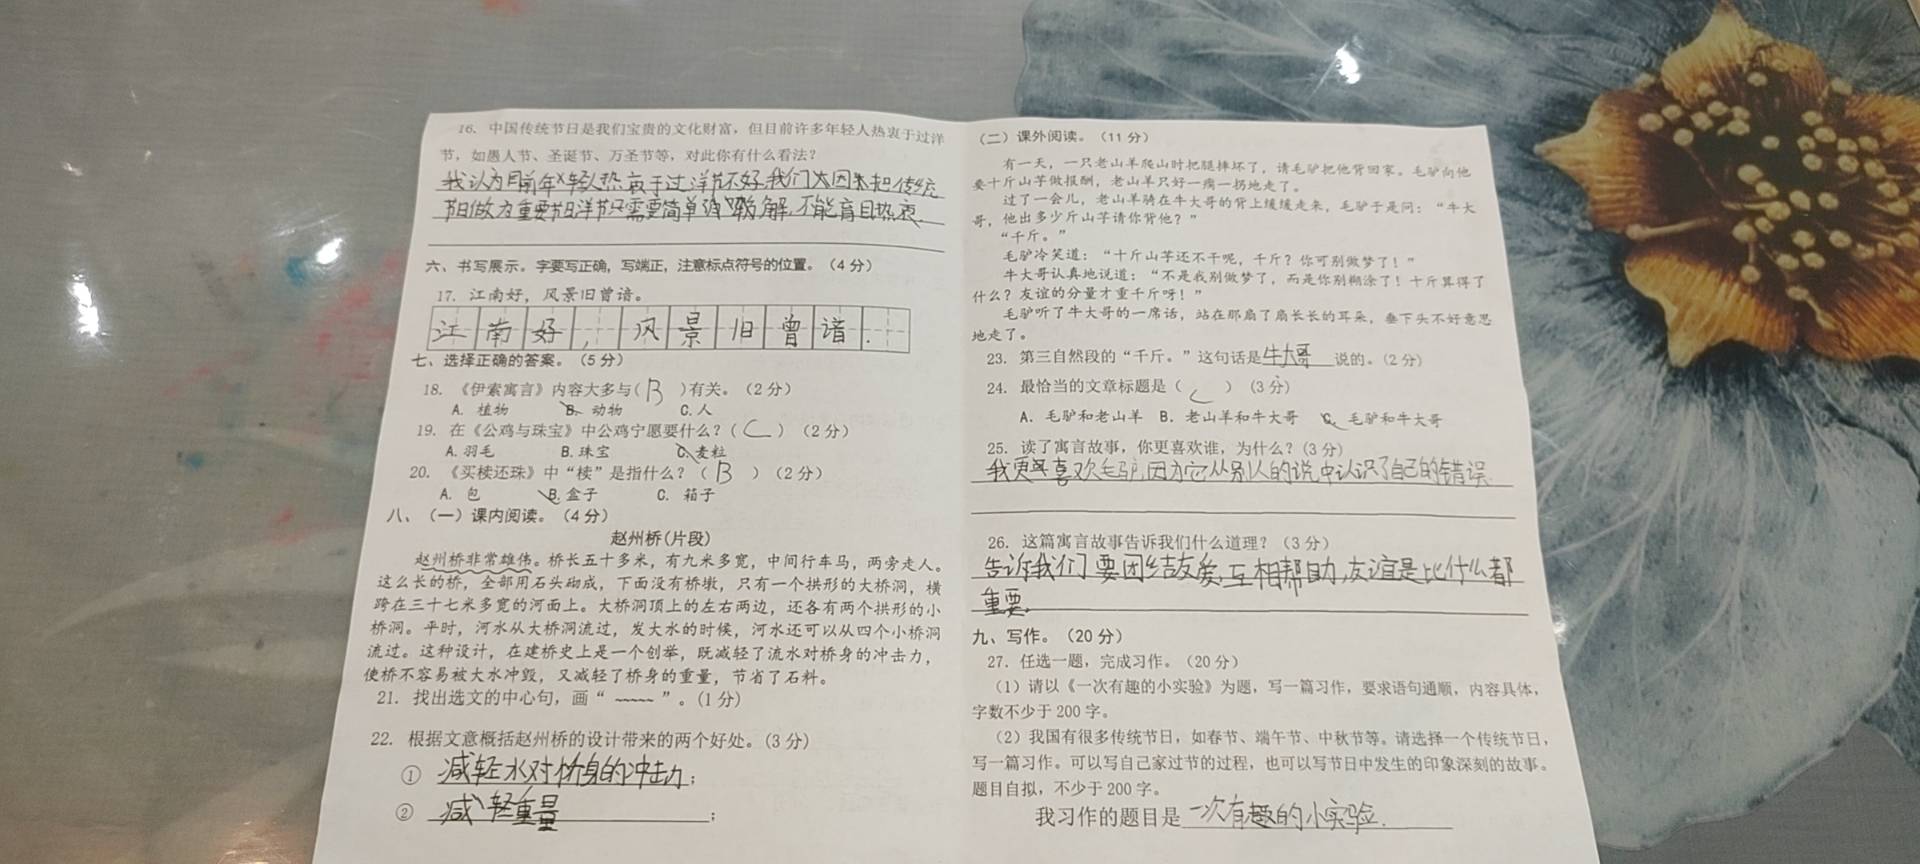 16. 中国传统节日是我们宝贵的文化财富，但目前许多年轻人热衷于过洋
节，如愚人节、圣诞节、万圣节等，对此你有什么看法？
我认为目前年轻人热衷于过洋节不好,我们大因来把传统
节日做为重要节日,洋节只需要简单的了解,不能盲目热衷.
六、书写展示。字要写正确，写端正，注意标点符号的位置。（4 分）
17. 江南好，风景旧曾谙。
江南好,风景旧曾谙.
七、选择正确的答案。（5 分）
18. 《伊索寓言》内容大多与( B )有关。（2 分）
A. 植物 B. 动物 C. 人
19. 在《公鸡与珠宝》中公鸡宁愿要什么？( C )（2 分）
A. 羽毛 B. 珠宝 C. 麦粒
20. 《买椟还珠》中“椟”是指什么？（ B ）（2 分）
A. 包 B. 盒子 C. 箱子
八、（一）课内阅读。（4 分）
赵州桥(片段)
赵州桥非常雄伟。桥长五十多米，有九米多宽，中间行车马，两旁走人。
这么长的桥，全部用石头砌成，下面没有桥墩，只有一个拱形的大桥洞，横
跨在三十七米多宽的河面上。大桥洞顶上的左右两边，还各有两个拱形的小
桥洞。平时，河水从大桥洞流过，发大水的时候，河水还可以从四个小桥洞
流过。这种设计，在建桥史上是一个创举，既减轻了流水对桥身的冲击力，
使桥不容易被大水冲毁，又减轻了桥身的重量，节省了石料。
21. 找出选文的中心句，画“ ~~~~~ ”。(1 分)
22. 根据文意概括赵州桥的设计带来的两个好处。(3 分)
① 减轻水对桥身的冲击力；
② 减轻重量；
（二）课外阅读。（11 分）
有一天，一只老山羊爬山时把腿摔坏了，请毛驴把他背回家。毛驴向他
要十斤山芋做报酬，老山羊只好一瘸一拐地走了。
过了一会儿，老山羊骑在牛大哥的背上缓缓走来，毛驴于是问：“牛大
哥，他出多少斤山芋请你背他？”
“千斤。”
毛驴冷笑道：“十斤山芋还不干呢，千斤？你可别做梦了！”
牛大哥认真地说道：“不是我别做梦了，而是你别糊涂了！十斤算得了
什么？友谊的分量才重千斤呀！”
毛驴听了牛大哥的一席话，站在那扇了扇长长的耳朵，垂下头不好意思
地走了。
23. 第三自然段的“千斤。”这句话是牛大哥说的。(2 分)
24. 最恰当的文章标题是（ C ）(3 分)
A. 毛驴和老山羊 B. 老山羊和牛大哥 C. 毛驴和牛大哥
25. 读了寓言故事，你更喜欢谁，为什么？(3 分)
我更喜欢毛驴,因为它从别人的说中认识了自己的错误.
26. 这篇寓言故事告诉我们什么道理？（3 分）
告诉我们要团结友爱,互相帮助,友谊是比什么都
重要.
九、写作。（20 分）
27. 任选一题，完成习作。（20 分）
（1）请以《一次有趣的小实验》为题，写一篇习作，要求语句通顺，内容具体，
字数不少于 200 字。
（2）我国有很多传统节日，如春节、端午节、中秋节等。请选择一个传统节日，
写一篇习作。可以写自己家过节的过程，也可以写节日中发生的印象深刻的故事。
题目自拟，不少于 200 字。
我习作的题目是一次有趣的小实验.